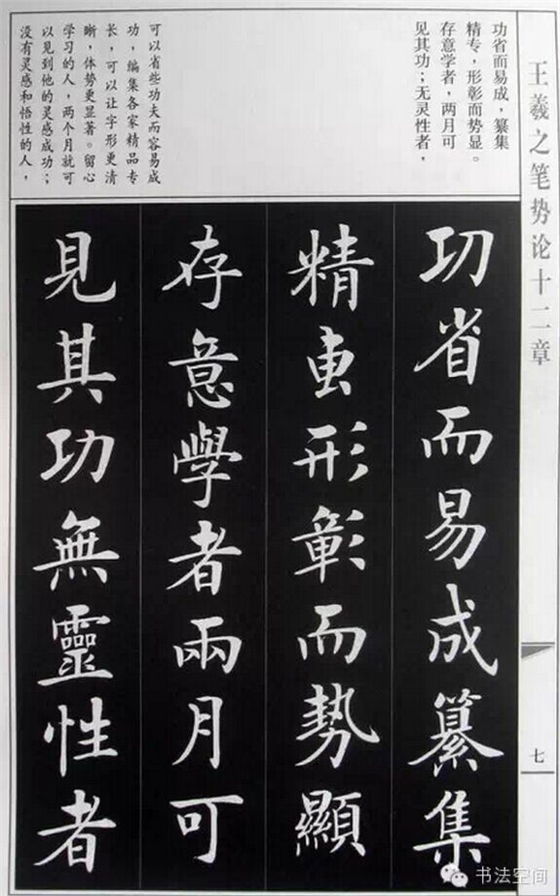 王羲之笔势论十二章
功省而易成，纂集
精专，形彰而势显。
存意学者，两月可
见其功；无灵性者，
可以省些功夫而容易成
功，编集各家精品专
长，可以让字形更清
晰，体势更显著。留心
学习的人，两个月就可
以见到他的灵感成功；
没有灵感和悟性的人，
功省而易成纂集
精専形彰而勢顯
存意學者兩月可
見其功無靈性者
七
书法空间